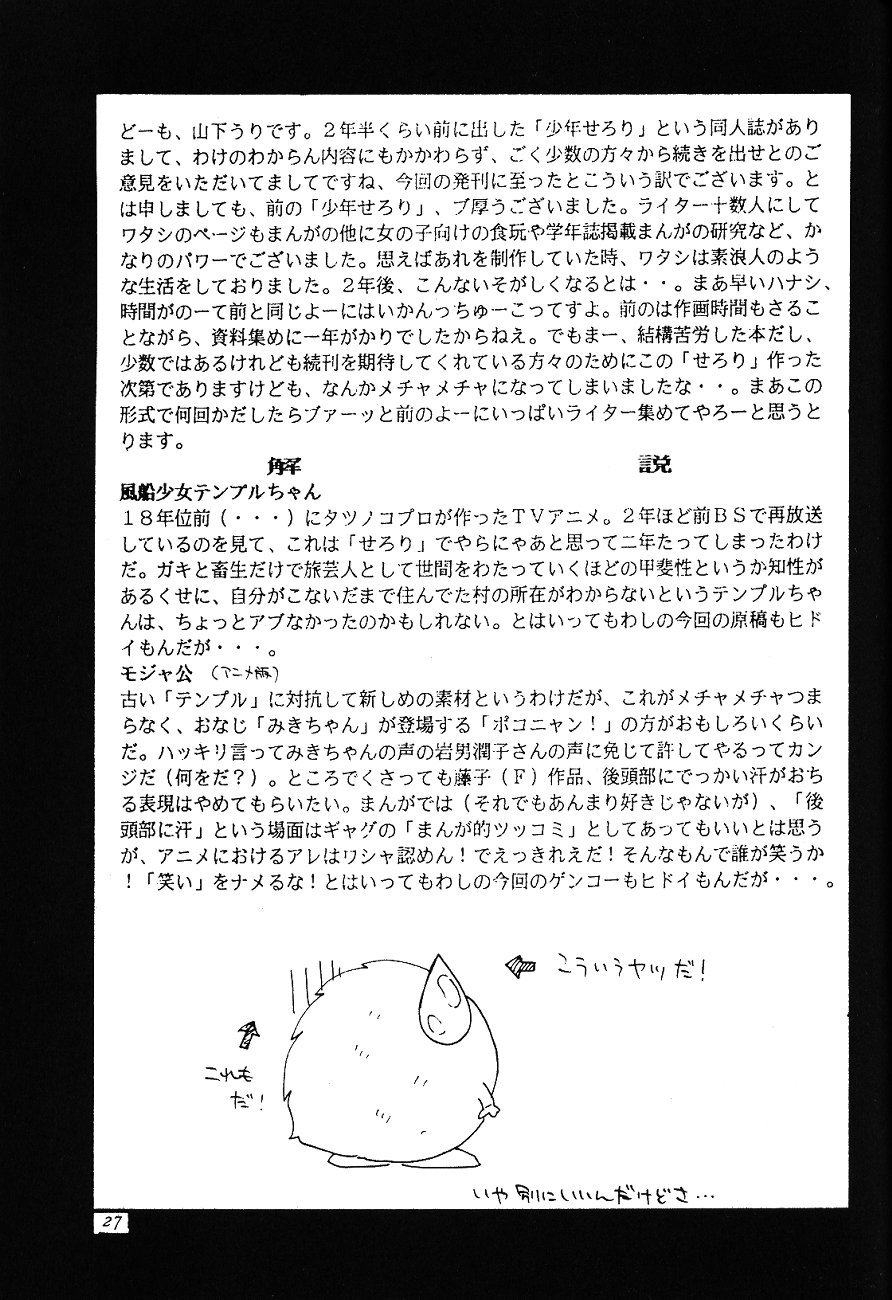 どーも、山下うりです。２年半くらい前に出した「少年せろり」という同人誌があり
まして、わけのわからん内容にもかかわらず、ごく少数の方々から続きを出せとのご
意見をいただいてましてですね、今回の発刊に至ったとこういう訳でございます。と
は申しましても、前の「少年せろり」、ブ厚うございました。ライター十数人にして
ワタシのページもまんがの他に女の子向けの食玩や学年誌掲載まんがの研究など、か
なりのパワーでございました。思えばあれを制作していた時、ワタシは素浪人のよう
な生活をしておりました。２年後、こんないそがしくなるとは・・。まあ早いハナシ、
時間がのーて前と同じよーにはいかんっちゅーこってすよ。前のは作画時間もさるこ
とながら、資料集めに一年がかりでしたからねえ。でもまー、結構苦労した本だし、
少数ではあるけれども続刊を期待してくれている方々のためにこの「せろり」作った
次第でありますけども、なんかメチャメチャになってしまいましたな・・。まあこの
形式で何回かだしたらブァーッと前のよーにいっぱいライター集めてやろーと思うと
ります。
解 説
風船少女テンプルちゃん
１８年位前（・・・）にタツノコプロが作ったＴＶアニメ。２年ほど前ＢＳで再放送
しているのを見て、これは「せろり」でやらにゃあと思って二年たってしまったわけ
だ。ガキと畜生だけで旅芸人として世間をわたっていくほどの甲斐性というか知性が
あるくせに、自分がこないだまで住んでた村の所在がわからないというテンプルちゃ
んは、ちょっとアブなかったのかもしれない。とはいってもわしの今回の原稿もヒド
イもんだが・・・。
モジャ公 （アニメ版）
古い「テンプル」に対抗して新しめの素材というわけだが、これがメチャメチャつま
らなく、おなじ「みきちゃん」が登場する「ポコニャン！」の方がおもしろいくらい
だ。ハッキリ言ってみきちゃんの声の岩男潤子さんの声に免じて許してやるってカン
ジだ（何をだ？）。ところでくさっても藤子（Ｆ）作品、後頭部にでっかい汗がおち
る表現はやめてもらいたい。まんがでは（それでもあんまり好きじゃないが）、「後
頭部に汗」という場面はギャグの「まんが的ツッコミ」としてあってもいいとは思う
が、アニメにおけるアレはワシャ認めん！でえっきれえだ！そんなもんで誰が笑うか
！「笑い」をナメるな！とはいってもわしの今回のゲンコーもヒドイもんだが・・・。
こういうヤツだ！
これも
だ！
いや別にいいんだけどさ…
27